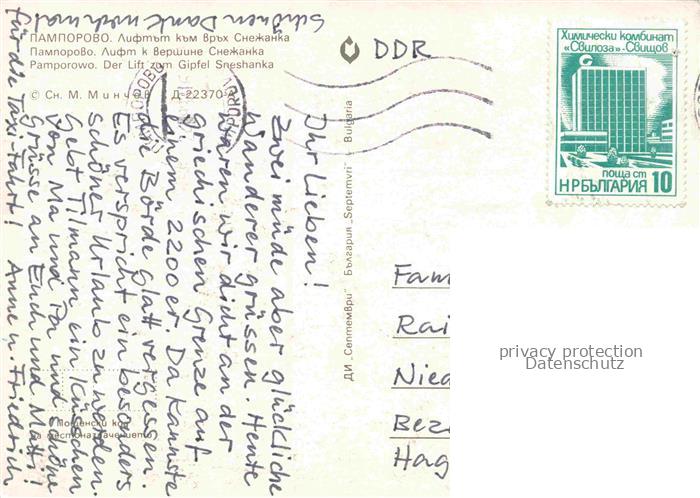 ПАМПОРОВО. Лифтът към връх Снежанка
Пампорово. Лифт к вершине Снежанка
Pamporowo. Der Lift zum Gipfel Sneshanka
© Сн. М. Минчев Д-22370-А
DDR
Химически комбинат
«Свилоза»-Свищов
поща ст
НР БЪЛГАРИЯ 10
Ihr Lieben!
Zwei müde aber glückliche
Wanderer grüssen. Heute
waren wir dicht an der
Griechischen Grenze auf
einem 2200er. Da kannste
die Börde glatt vergessen.
Es verspricht ein besonders
schöner Urlaub zu werden.
Gebt Tilmann ein Küsschen
von Ma und Pa und schöne
Grüsse an Euch und Matti!
für die Taxifahrt! Anne u. Friedrich
Schönen Dank nochmal
ДИ „Септември" България „Septemvri" Bulgaria
Пощенски код
на местоназначението
Fam
Rai
Nied
Bez
Hag
privacy protection
Datenschutz